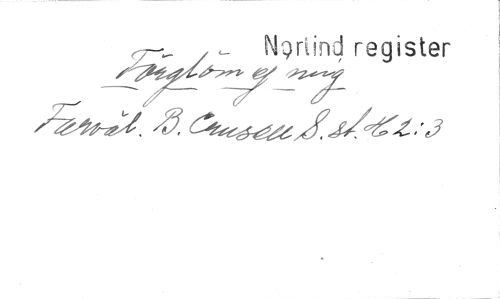 Norlind register
Förglöm ej mig
Farväl. B. Crusell S. st. H 2:3